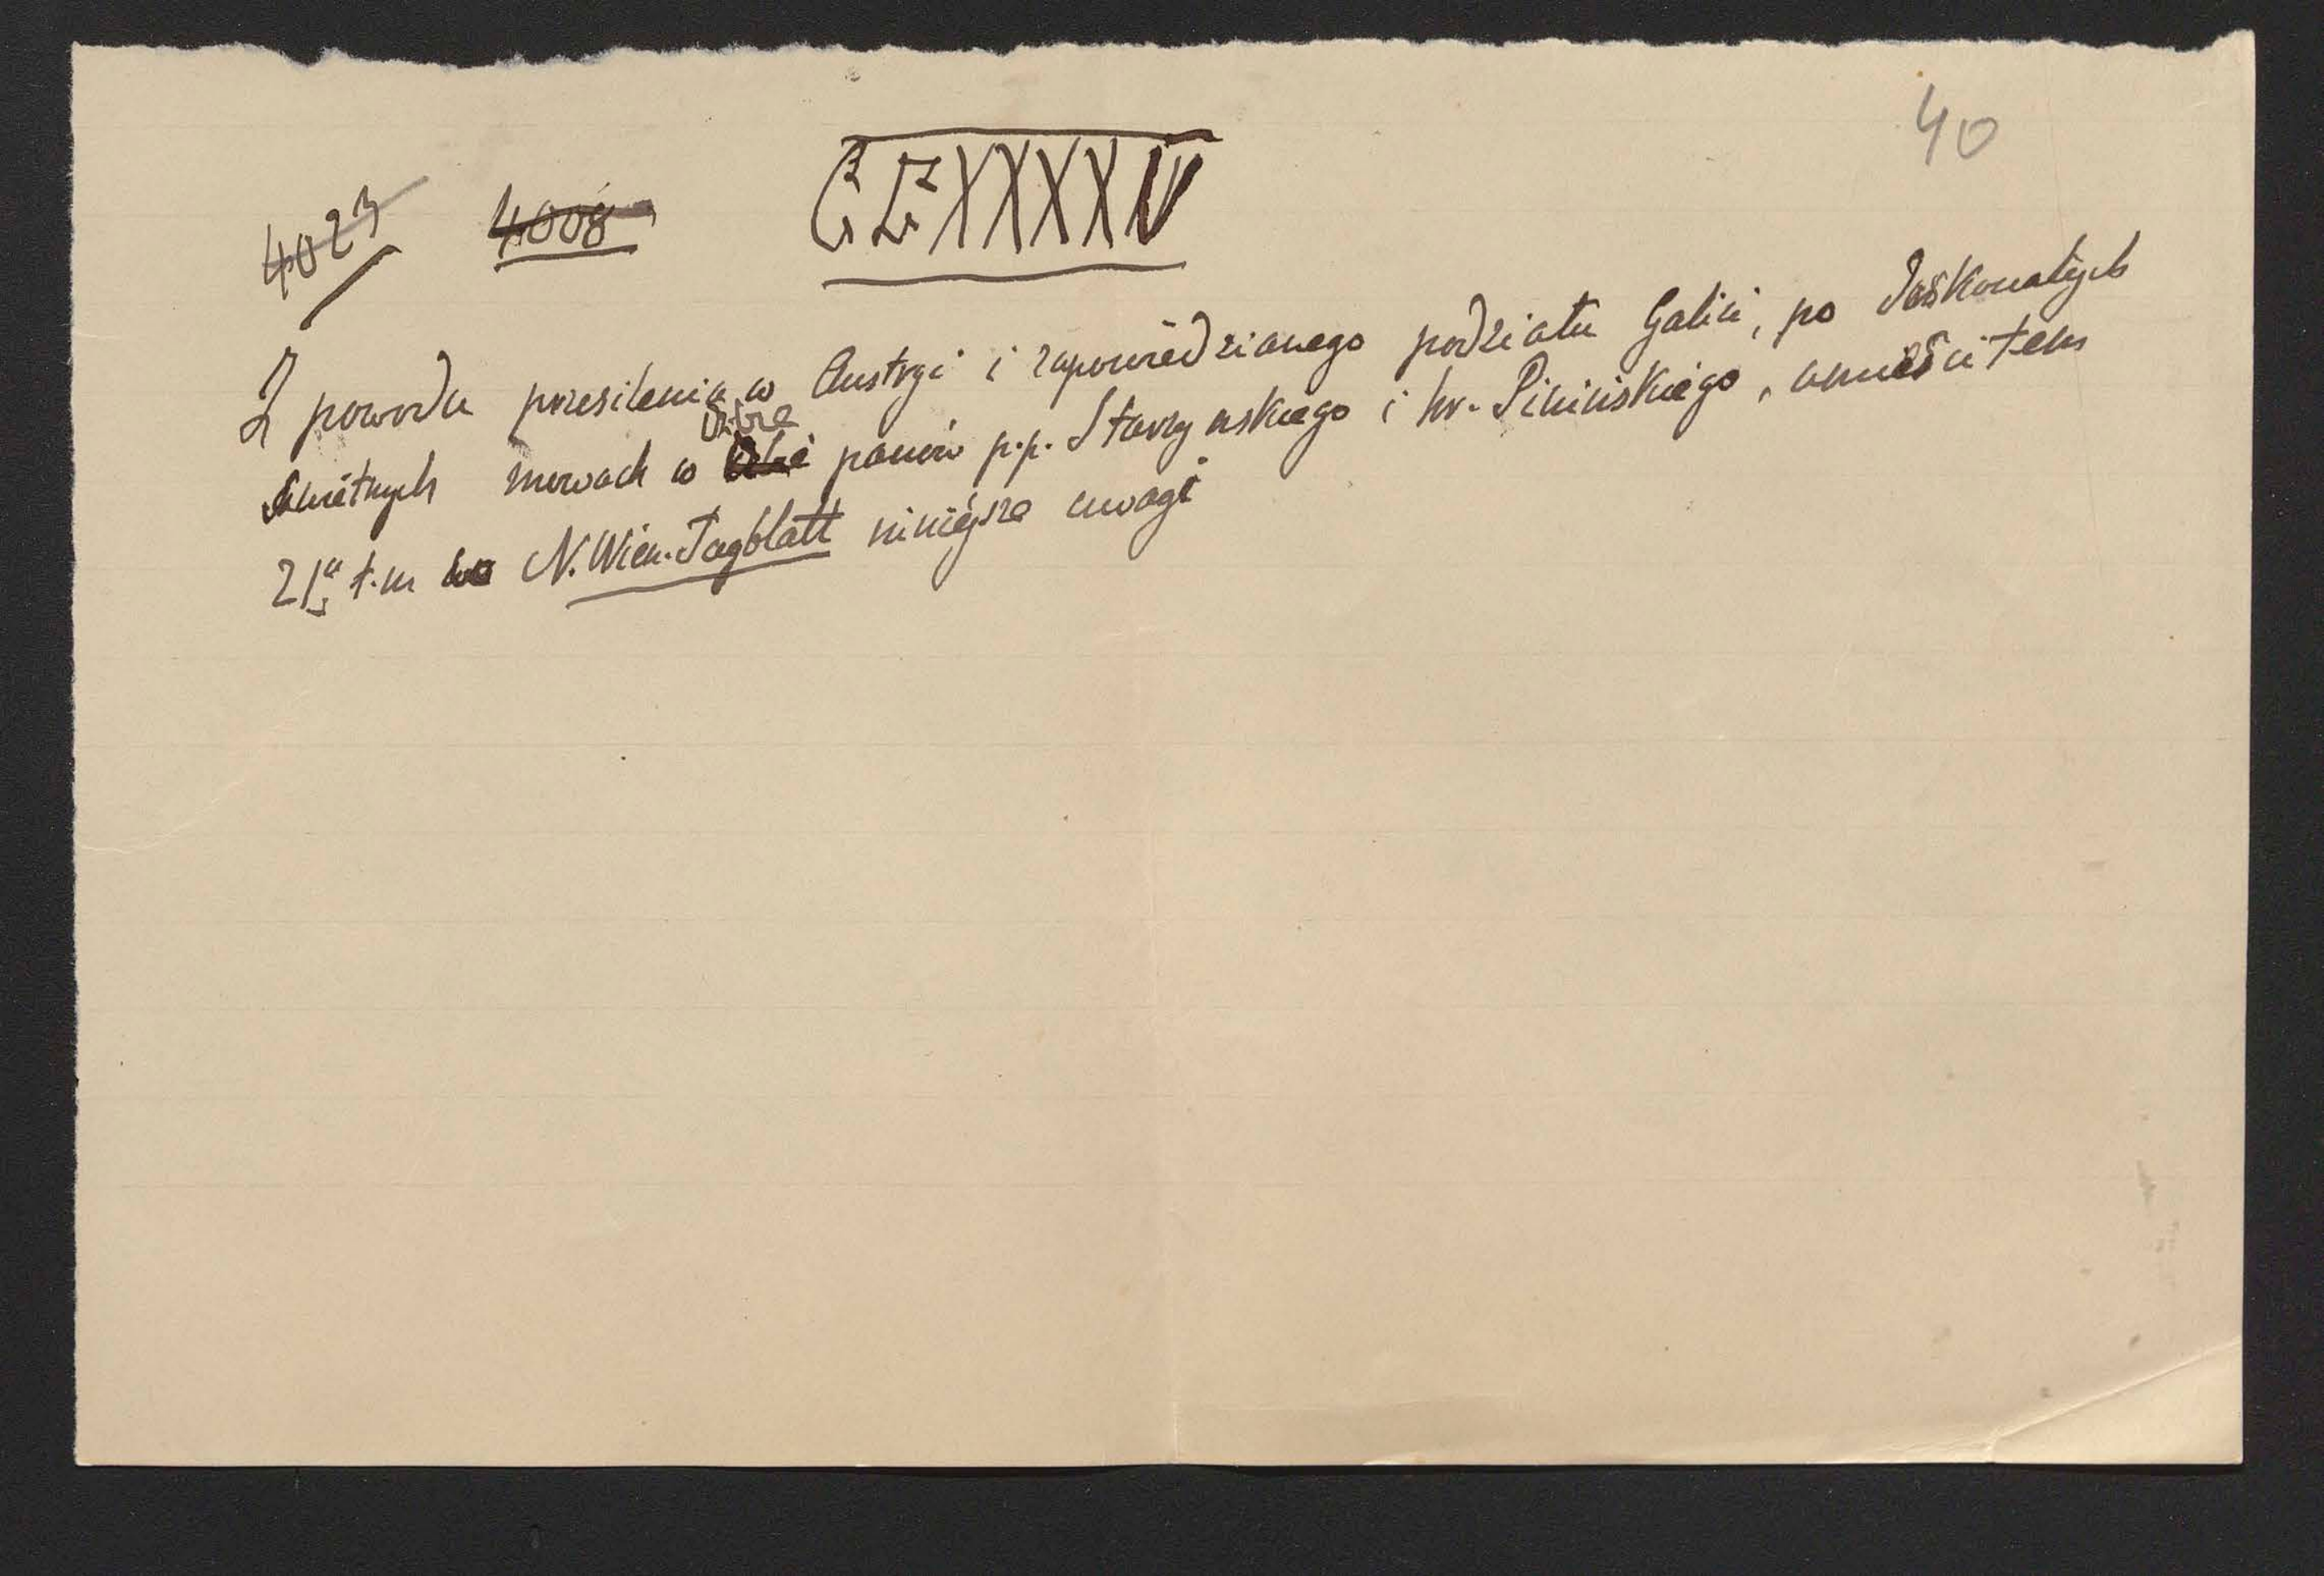 40
4023 4008 CCXXXXV
Z powodu przesilenia w Austryi i zapowiedzianego podziału Galicii, po doskonałych
świetnych mowach w Izbie panów p.p. Starzynskiego i hr. Pinińskiego, umieścitem
21go t.m w N. Wien. Tagblatt niniejsze uwagi